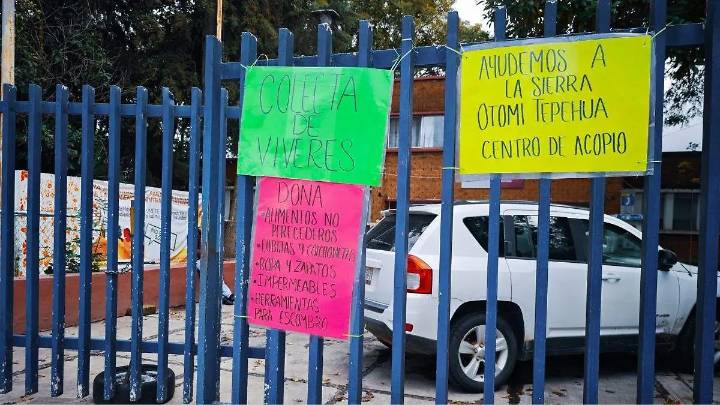 COLECTA
DE
VIVERES
DONA
•ALIMENTOS NO
PERECEDEROS
•COBIJAS Y COLCHONETAS
•ROPA Y ZAPATOS
•IMPERMEABLES
•HERRAMIENTAS
PARA ESCOMBRO
AYUDEMOS A
LA SIERRA
OTOMI TEPEHUA
CENTRO DE ACOPIO